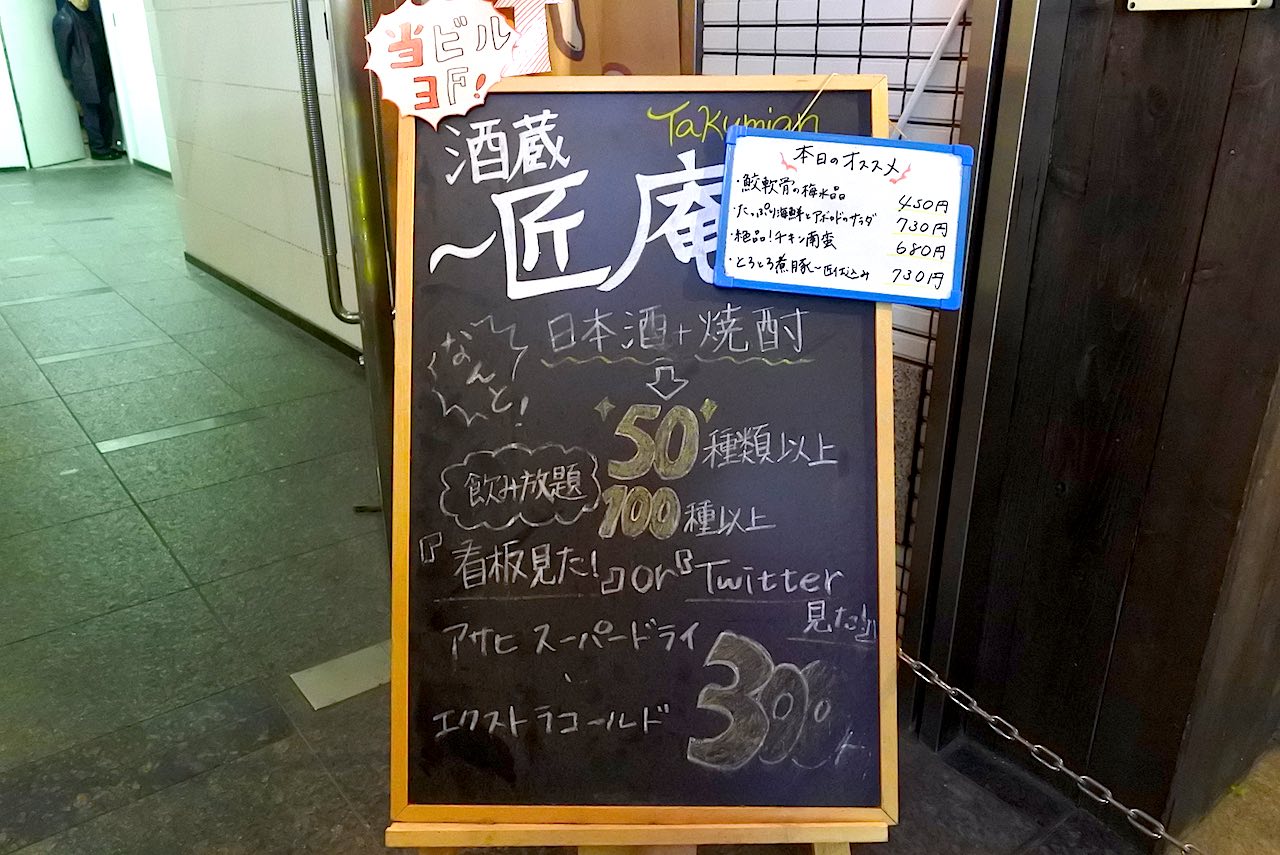 当ビル
3F!
酒蔵
Takumian
〜匠庵
本日のオススメ
・鮫軟骨の梅水晶 450円
・たっぷり海鮮とアボカドのサラダ 730円
・絶品!チキン南蛮 680円
・とろとろ煮豚〜匠仕込み 730円
なんと!
日本酒+焼酎
⇩
50種類以上
飲み放題
100種以上
『看板見た!』or『Twitter
見た!』
アサヒ スーパードライ
エクストラコールド
300